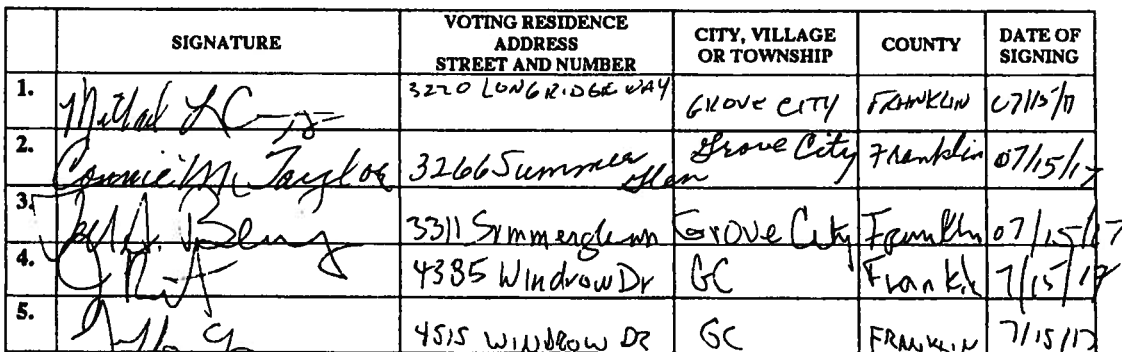 SIGNATURE VOTING RESIDENCE ADDRESS STREET AND NUMBER CITY, VILLAGE OR TOWNSHIP COUNTY DATE OF SIGNING
1. 3220 LONGRIDGE WAY GROVE CITY FRANKLIN 07/15/17
2. Connie M Taylor 3266 Summer Glen Grove City Franklin 07/15/17
3. 3311 Summerglenn Grove City Franklin 07/15/17
4. 4385 Windrow Dr GC Franklin 7/15/17
5. 4515 WINDROW DR GC FRANKLIN 7/15/17